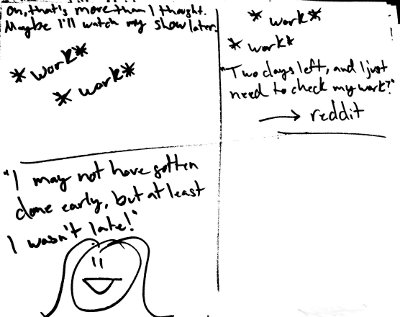 Oh, that's more than I thought.
Maybe I'll watch my show later.
*work*
*work*
*work*
*work*
"Two days left, and I just
need to check my work?"
→ reddit
"I may not have gotten
done early, but at least
I wasn't late!"